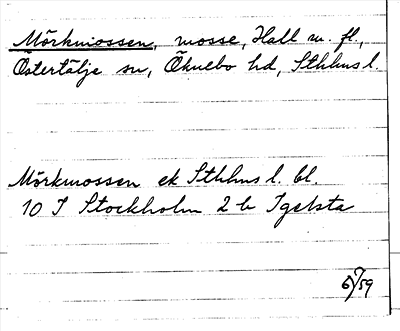 Mörkmossen, mosse, Hall m. fl.,
Östertälje sn, Öknebo hd, Sthlms l.
Mörkmossen ek Sthlms l. bl.
10 I Stockholm 2 b Igelsta
6/7 59